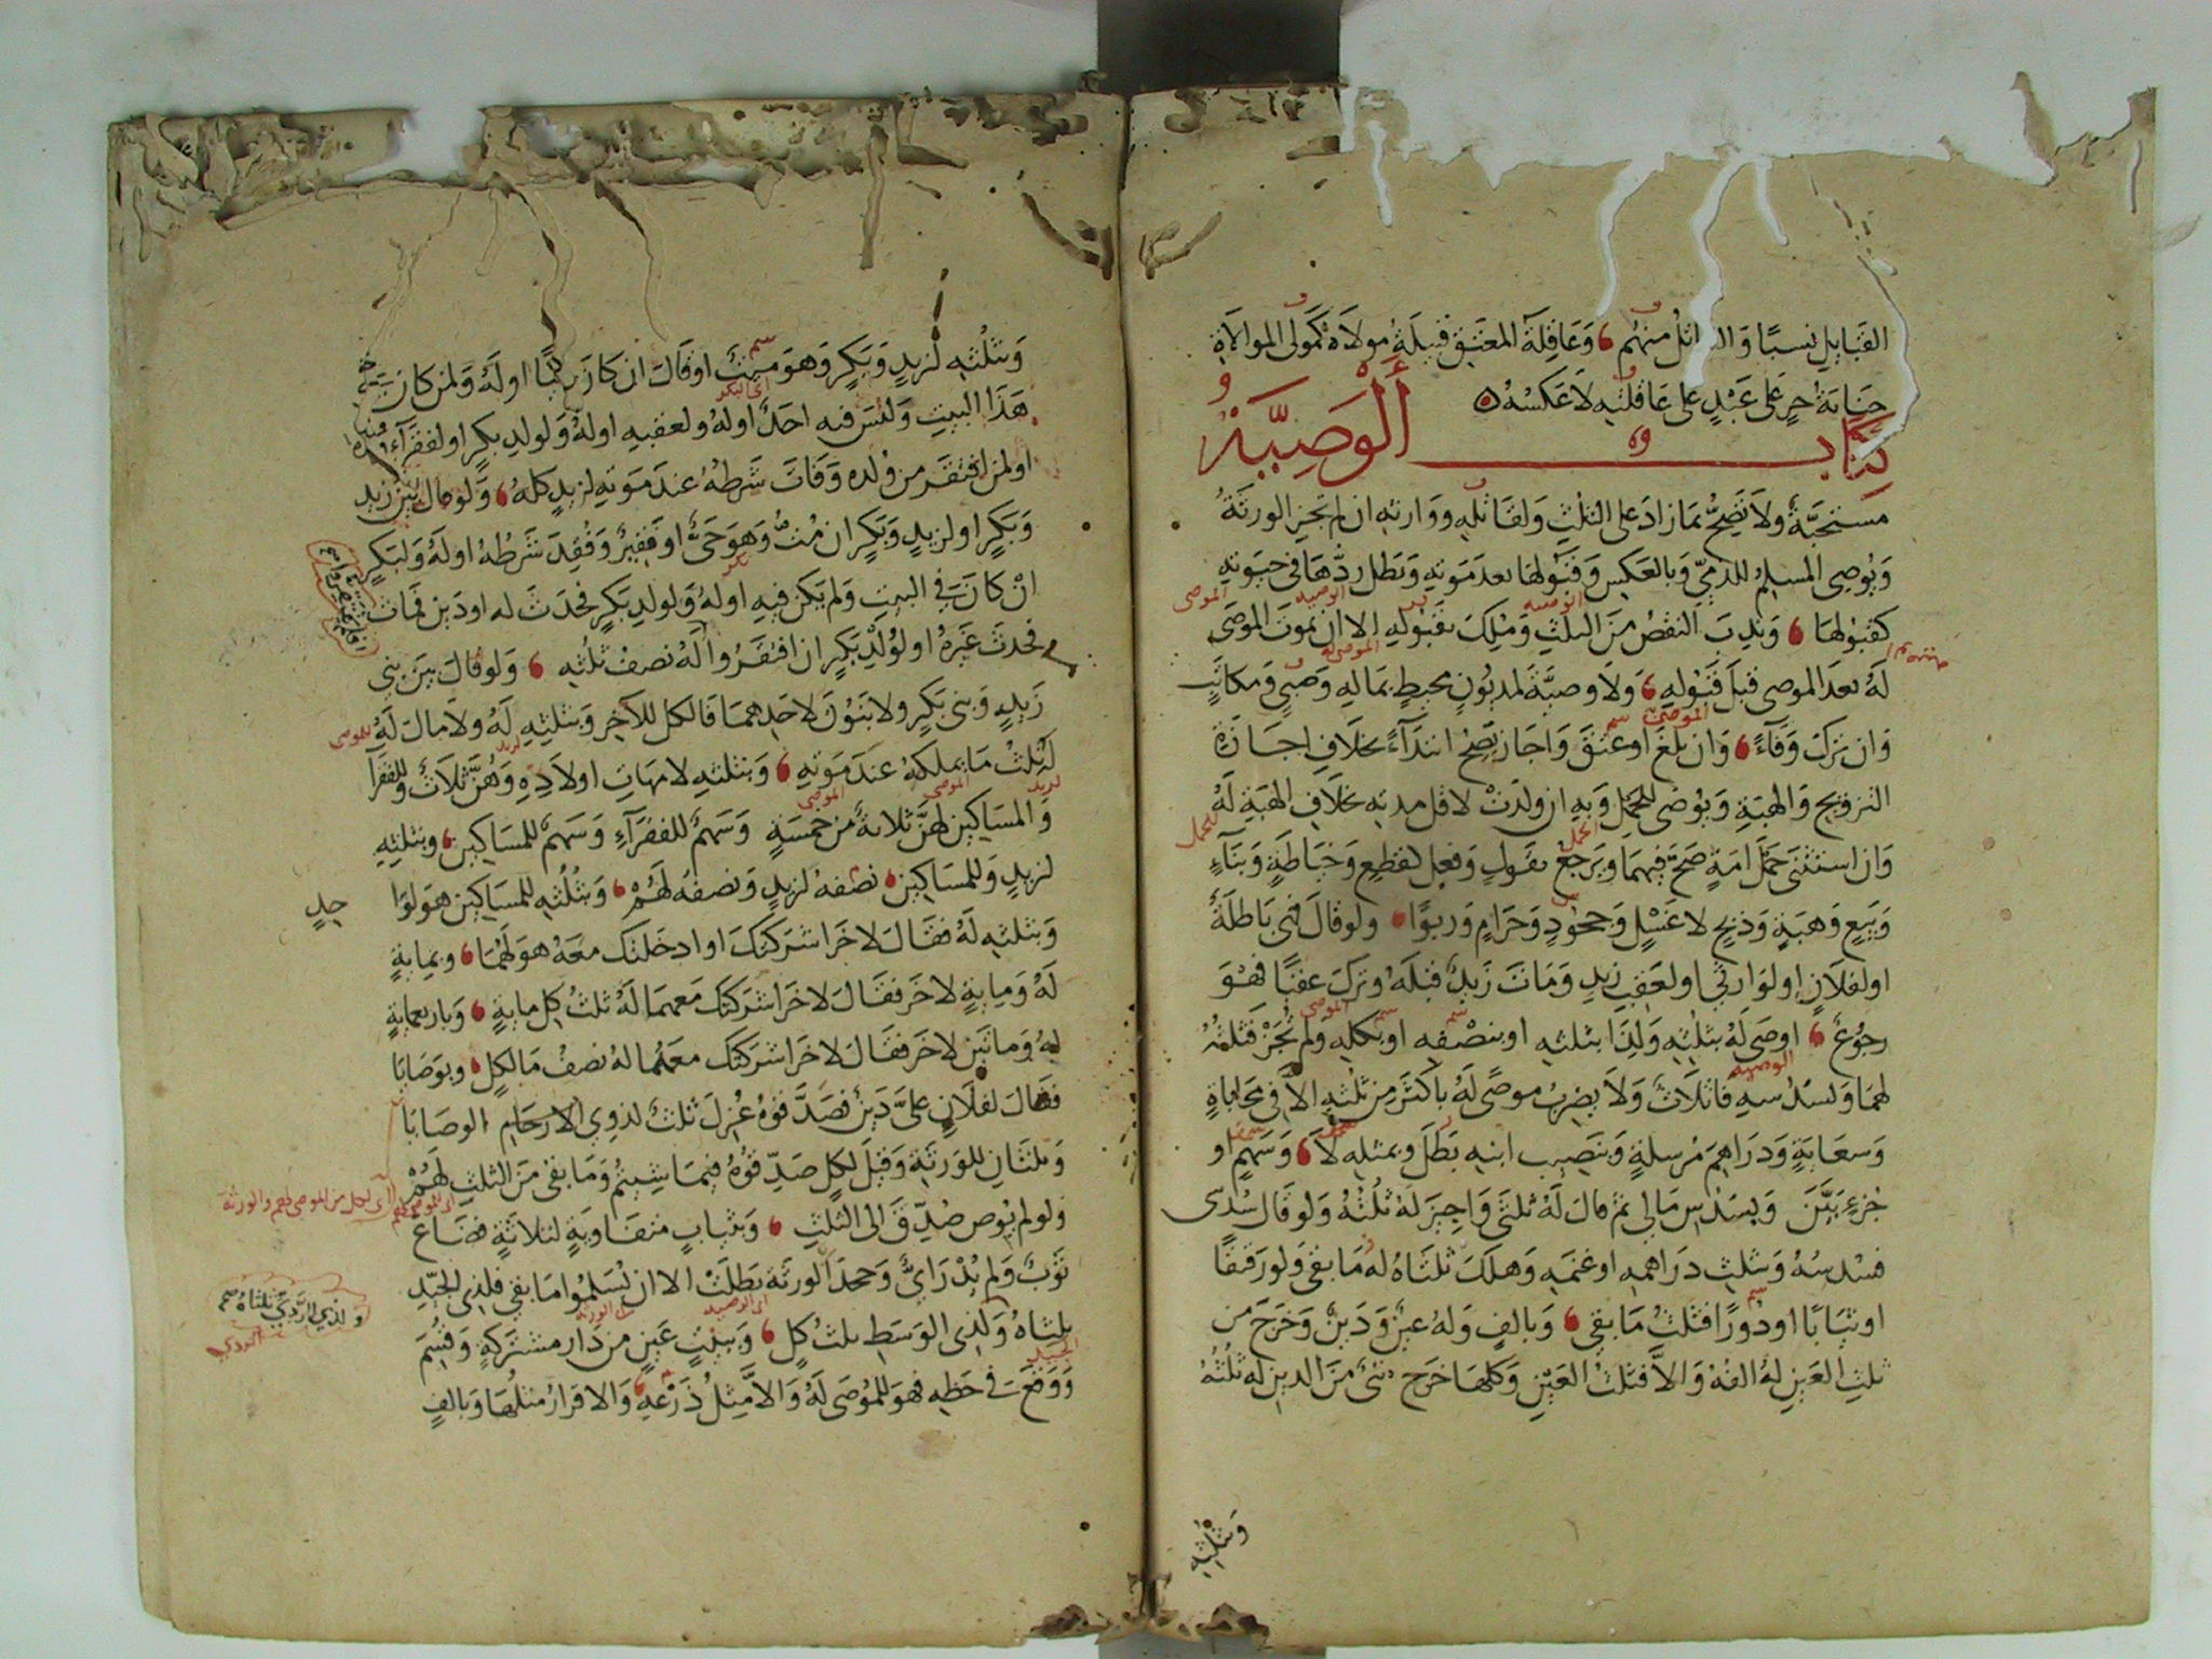 القبايل نسبًا وال منهم وعاقلة المعتق قبيلة مولاه كمولى الموالاة
جناية حر على عبد على عاقلته لا عكسه
كتاب الوصية
مستحبة ولا تصح بما زاد على الثلث ولقاتله ووارثه ان لم تجز الورثة
ويوصى المسلم للذمي وبالعكس وقبولها بعد موته وبطل ردها في حيوته
كقبولها وندب النقص من الثلث وملك بقبوله الا ان يموت الموصى
له بعد الموصى قبل قبوله ولا وصية لمديون محيط بماله وصبي ومكاتب
وان ترك وفاء وان بلغ او عتق واجاز يصح ابتداء بخلاف اجازة
التزويج والهبة ويوصى للحمل وبه ان ولدت لاقل مدته بخلاف الهبة له
وان استثنى حمل امة صح فيهما ويرجع بقول وفعل لقطع وخياطة وبناء
وبيع وهبة وذبح لا غسل وجحود وحرام وربوًا ولو قال فهى باطلة
او لفلان او لوارثي او لعقب زيد ومات زيد قبله وترك عقبًا فهو
رجوع اوصى له بثلثه ولذا بثلثه او بنصفه او بكله ولم تجز فثلثه
لهما وبسدسه فاثلاث ولا يضرب موصًى له باكثر من ثلثه الا في محاباة
وسعاية ودراهم مرسلة وبنصيب ابنه بطل وبمثله لا وسهم او
جزء بين وبسدس مالي ثم قال له ثلثي واجيز له ثلثه ولو قال سدسى
فسدسه وبثلث دراهمه او غنمه وهلك ثلثاه له ما بقى ولو رقيقًا
او ثيابًا او دورًا فثلث ما بقي وبالف وله عين ودين وخرج من
ثلث العين له الفه والا فثلث العين وكلما خرج شئ من الدين له ثلثه
وبثلثه
وبثلثه لزيد وبكر وهو ميت او قال ان كان حيًا او له ولمن كان في
هذا البيت وليس فيه احد او له ولعقبه او له ولولد بكر او لفقراء ولده
او لمن افتقر من ولده وفات شرطه عند موته لزيد كله ولو قال بين زيد
وبكر او لزيد وبكر ان مت وهو حي او فقير وفقد شرطه او له ولبكر
ان كان في البيت ولم يكن فيه او له ولولد بكر فحدث له او دين فمات
فحدث غيره او لولد بكر ان افتقروا له نصف ثلثه ولو قال بين بنى
زيد وبنى بكر ولا بنون لاحدهما فالكل للآخر وبثلثه له ولا مال له
له ثلث ما يملكه عند موته وبثلثه لامهات اولاده وهن ثلاث وللفقرا
والمساكين لهن ثلاثة من خمسة وسهم للفقراء وسهم للمساكين وبثلثه
لزيد وللمساكين نصفه لزيد ونصفه لهم وبثلثه للمساكين هو لوا
حد
وبثلثه له فقال لاخر اشركتك او ادخلتك معه هو لهما وبماية
له وماية لاخر فقال لاخر اشركتك معهما له ثلث كل ماية وباربعماية
له ومائتين لاخر فقال لاخر اشركتك معهما له نصف ما لكل وبوصايا
فقال لفلان على دين فصدقوه عزل ثلث لذوى الارحام الوصايا
وثلثان للورثة وقيل لكل صدقوه فيما شيتم وما بقى من الثلث لهم
اى لكل من الموصى لهم والورثة
ولو لم يوص صدق الى الثلث وبثياب متفاوتة لثلاثة فضاع
ثوب ولم يدر اي وجحد الورثة بطلت الا ان يسلموا ما بقى فلذى الجيد
ثلثاه ولذى الوسط ثلث كل وببيت عين من دار مشتركة وقسم
ولذي الردي ثلثاه صح
ووقع في حظه فهو للموصى له والا مثل ذرعه والاقرار مثلها وبالف